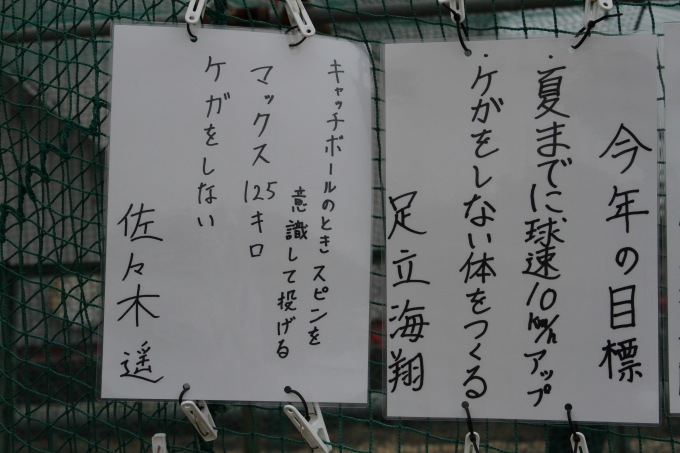 今年の目標
・夏までに球速10km/hアップ
・ケガをしない体をつくる
足立海翔
キャッチボールのときスピンを
意識して投げる
マックス125キロ
ケガをしない
佐々木遥